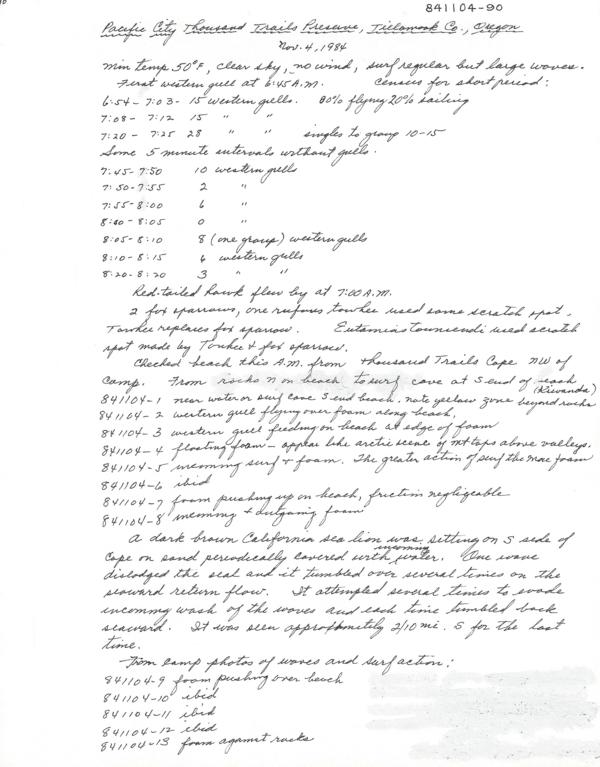 841104-90
Pacific City Thousand Trails Preserve, Tillamook Co., Oregon
Nov. 4, 1984
min temp 50°F, clear sky, no wind, surf regular but large waves.
First western gull at 6:45 A.M. Census for short period:
6:54 - 7:03 - 15 western gulls. 80% flying 20% sailing
7:08 - 7:12 15 " "
7:20 - 7:25 28 " " singles to group 10-15
Some 5 minute intervals without gulls.
7:45 - 7:50 10 western gulls
7:50 - 7:55 2 "
7:55 - 8:00 6 "
8:00 - 8:05 0 "
8:05 - 8:10 8 (one group) western gulls
8:10 - 8:15 6 western gulls
8:20 - 8:20 3 " "
Red-tailed hawk flew by at 7:00 A.M.
2 fox sparrows, one rufous towhee used same scratch spot.
Towhee replaces fox sparrow. Eutamias townsendi used scratch
spot made by Towhee & fox sparrow.
Checked beach this A.M. from thousand Trails Cape NW of
camp. From rocks N on beach to surf cave at S end of beach
(Kiwanda)
841104-1 near water or surf cave S end beach. note yellow zone beyond rocks
841104-2 western gull flying over foam along beach.
841104-3 western gull feeding on beach at edge of foam
841104-4 floating foam - appear like arctic scene of mt tops above valleys.
841104-5 incoming surf & foam. The greater action of surf the more foam
841104-6 ibid
841104-7 foam pushing up on beach, friction negligeable
841104-8 incoming & outgoing foam
A dark brown California sea lion was sitting on S side of
Cape on sand periodically covered with incoming water. One wave
dislodged the seal and it tumbled over several times on the
seaward return flow. It attempted several times to evade
incoming wash of the waves and each time tumbled back
seaward. It was seen approximately 2/10 mi. S for the last
time.
From camp photos of waves and surf action:
841104-9 foam pushing over beach
841104-10 ibid
841104-11 ibid
841104-12 ibid
841104-13 foam against rocks